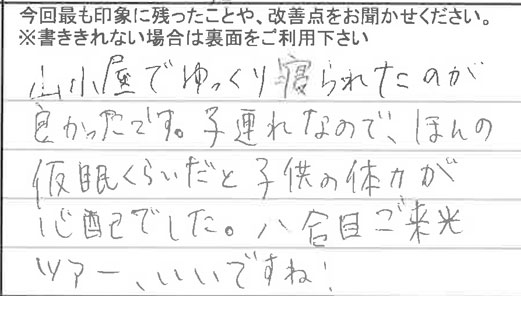 今回最も印象に残ったことや、改善点をお聞かせください。
※書ききれない場合は裏面をご利用下さい
山小屋でゆっくり寝られたのが
良かったです。子連れなので、ほんの
仮眠くらいだと子供の体力が
心配でした。八合目ご来光
ツアー、いいですね!